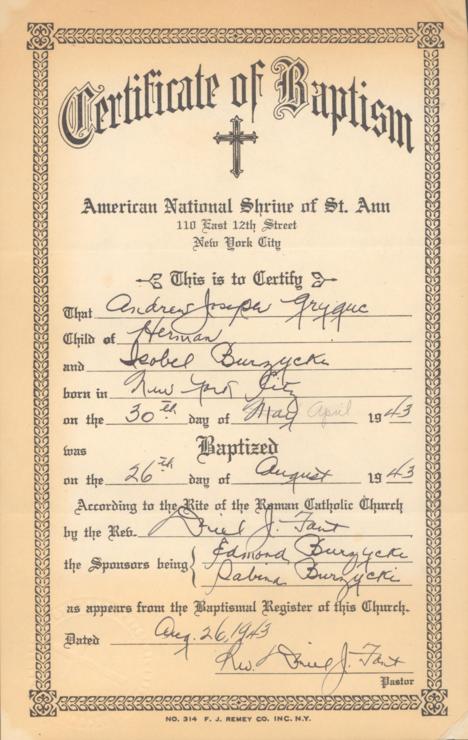 Certificate of Baptism
American National Shrine of St. Ann
110 East 12th Street
New York City
This is to Certify
That Andrew Joseph Gryguc
Child of Herman
and Isobel Burzycki
born in New York City
on the 30th day of May April 1943
was Baptized
on the 26th day of August 1943
According to the Rite of the Roman Catholic Church
by the Rev. J. Fant
the Sponsors being { Edmond Burzycki
Sabina Burzycki
as appears from the Baptismal Register of this Church.
Dated Aug. 26, 1943
Rev. J. Fant
Pastor
NO. 314 F. J. REMEY CO. INC. N.Y.